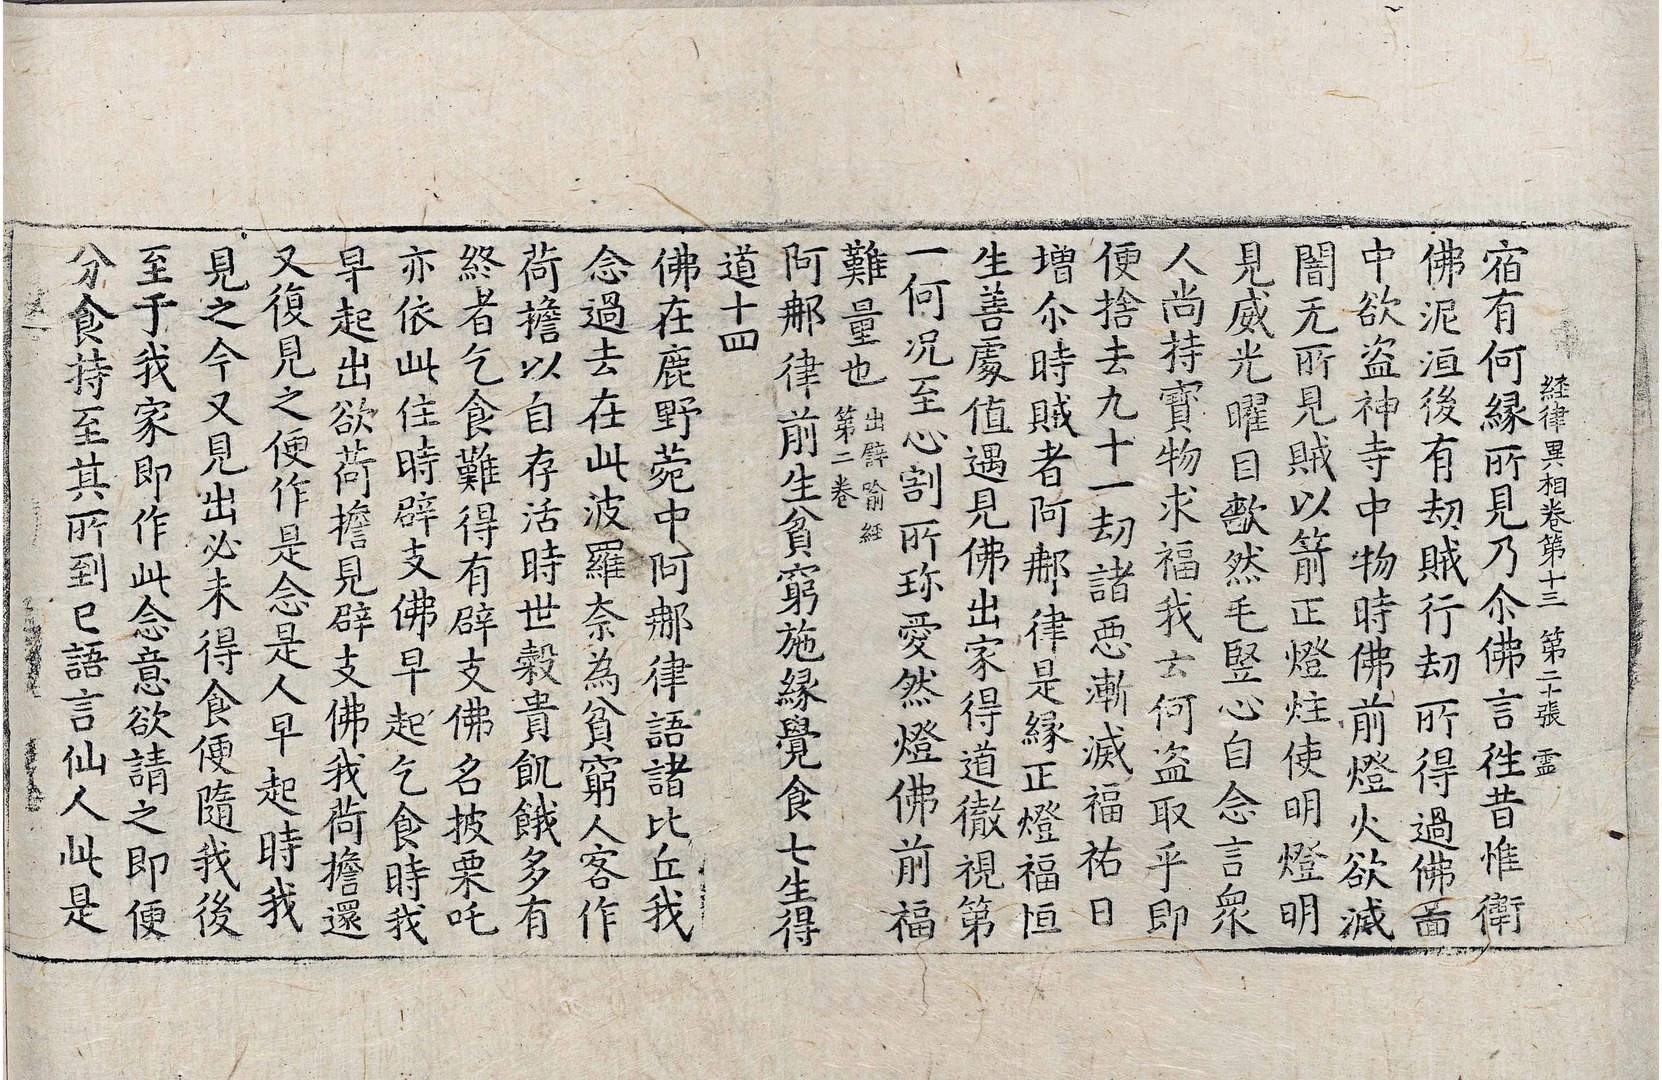 経律異相卷第十三 第二十張 霊
宿有何縁所見乃尒佛言徃昔惟衛
佛泥洹後有劫賊行劫所得過佛啚
中欲盗神寺中物時佛前燈火欲滅
闇无所見賊以箭正燈炷使明燈明
見威光曜目歘然毛竪心自念言衆
人尚持寳物求福我云何盗取乎即
便捨去九十一劫諸惡漸滅福祐日
増尒時賊者阿那律是縁正燈福恒
生善處值遇見佛出家得道徹視第
一何况至心割所珎愛然燈佛前福
難量也 出譬喻経
第二卷
阿那律前生貧窮施縁覺食七生得
道十四
佛在鹿野菀中阿那律語諸比丘我
念過去在此波羅奈為貧窮人客作
荷擔以自存活時世穀貴飢餓多有
終者乞食難得有辟支佛名披栗吒
亦依此住時辟支佛早起乞食時我
早起出欲荷擔見辟支佛我荷擔還
又復見之便作是念是人早起時我
見之今又見出必未得食便隨我後
至于我家即作此念意欲請之即便
分食持至其所到已語言仙人此是